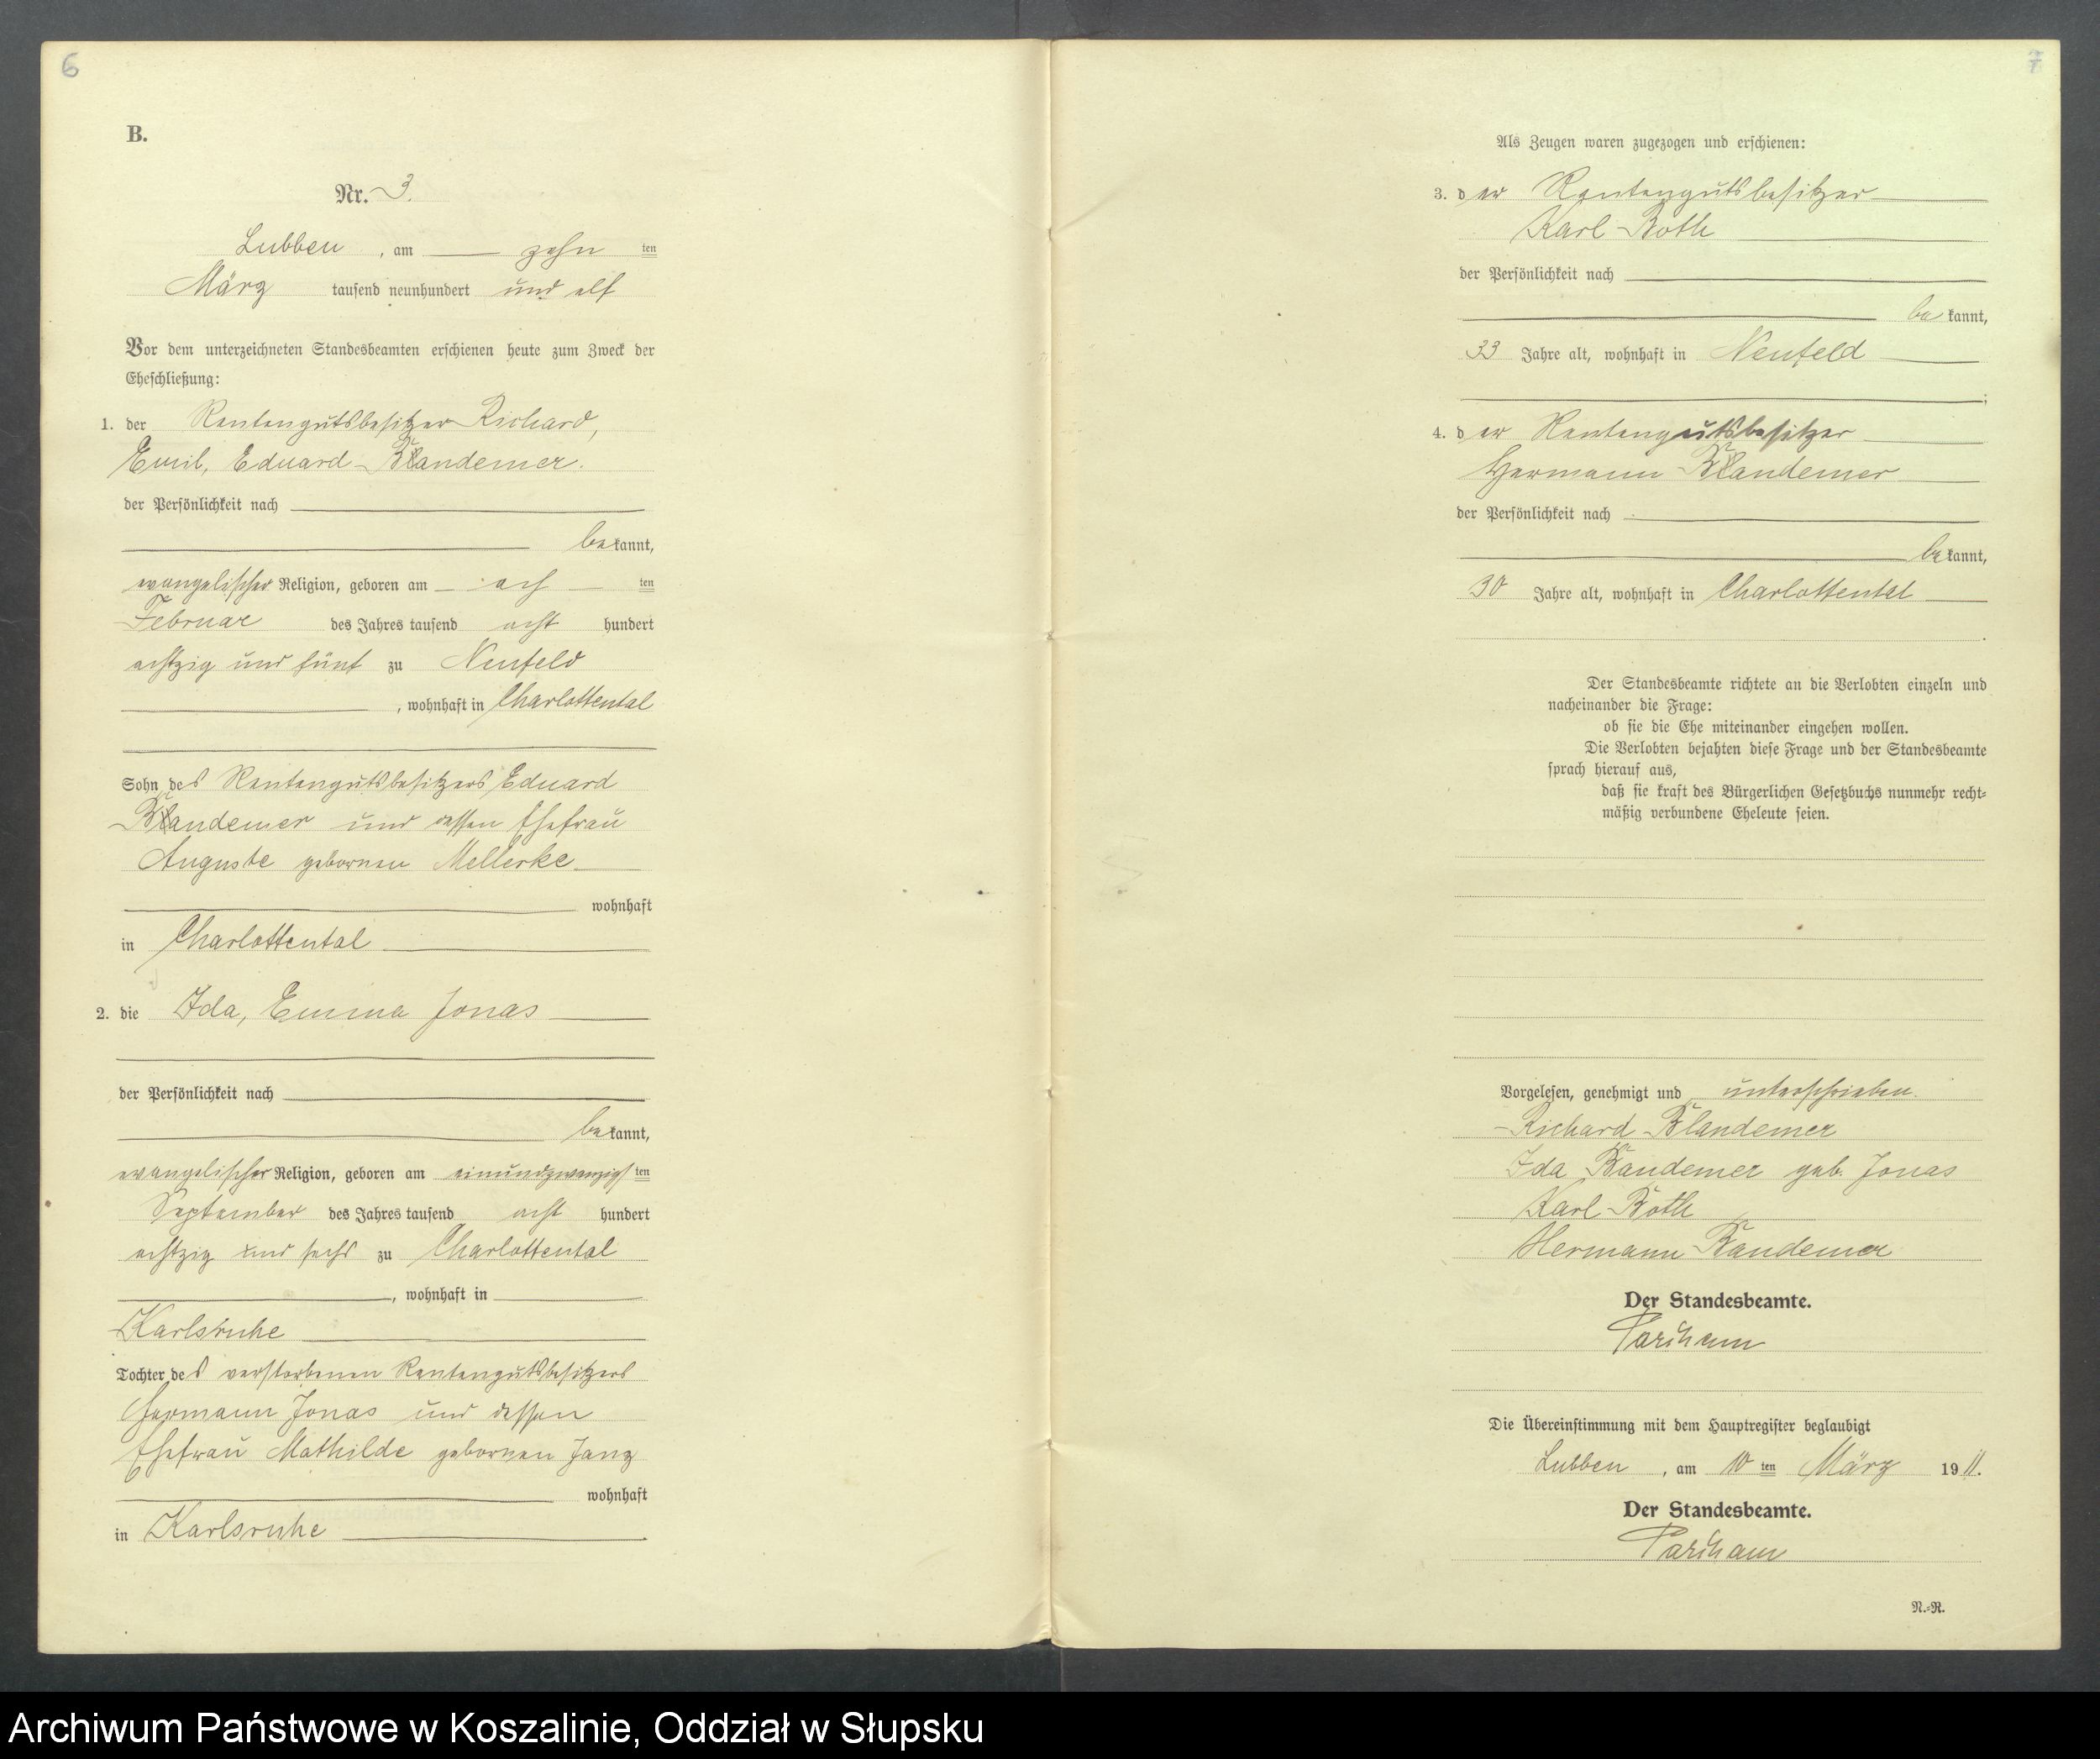 6
B.
Nr. 3.
Lubben, am zehn ten
März tausend neunhundert und elf
Vor dem unterzeichneten Standesbeamten erschienen heute zum Zweck der
Eheschließung:
1. der Rentengutsbesitzer Richard,
Emil, Eduard Bandemer.
der Persönlichkeit nach
be kannt,
evangelischer Religion, geboren am ach ten
Februar des Jahres tausend acht hundert
achtzig und fünf zu Neufeld
, wohnhaft in Charlottental
Sohn des Rentengutsbesitzers Eduard
Bandemer und dessen Ehefrau
Auguste gebornen Mellerke
wohnhaft
in Charlottental
2. die Ida, Emma Jonas
der Persönlichkeit nach
be kannt,
evangelischer Religion, geboren am einundzwanzigs ten
September des Jahres tausend acht hundert
achtzig und sechs zu Charlottental
, wohnhaft in
Karlsruhe
Tochter des verstorbenen Rentengutsbesitzers
Hermann Jonas und dessen
Ehefrau Mathilde gebornen Janz
wohnhaft
in Karlsruhe
7
Als Zeugen waren zugezogen und erschienen:
3. der Rentengutsbesitzer
Karl Both
der Persönlichkeit nach
be kannt,
33 Jahre alt, wohnhaft in Neufeld
;
4. der Rentengutsbesitzer
Hermann Bandemer
der Persönlichkeit nach
be kannt,
30 Jahre alt, wohnhaft in Charlottental
.
Der Standesbeamte richtete an die Verlobten einzeln und
nacheinander die Frage:
ob sie die Ehe miteinander eingehen wollen.
Die Verlobten bejahten diese Frage und der Standesbeamte
sprach hierauf aus,
daß sie kraft des Bürgerlichen Gesetzbuchs nunmehr recht-
mäßig verbundene Eheleute seien.
Vorgelesen, genehmigt und unterschrieben.
Richard Blandemer
Ida Bandemer geb. Jonas
Karl Both
Hermann Bandemer
Der Standesbeamte.
Die Übereinstimmung mit dem Hauptregister beglaubigt
Lubben, am 10 ten März 1911.
Der Standesbeamte.
N.-R.
Archiwum Państwowe w Koszalinie, Oddział w Słupsku